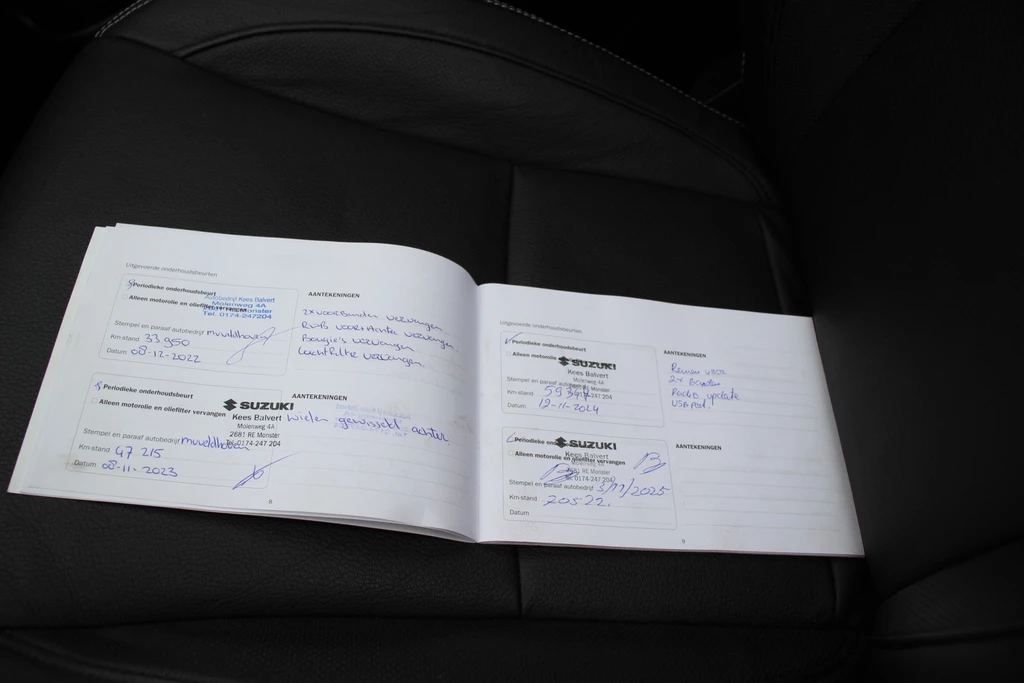 Uitgevoerde onderhoudsbeurten
Periodieke onderhoudsbeurt
Alleen motorolie en oliefilter
Autobedrijf Kees Balvert
Molenweg 4A
Tel. 0174-247204
Stempel en paraaf autobedrijf mvveldhoven
Km-stand 33950
Datum 08-12-2022
AANTEKENINGEN
2x voorbanden vervangen
voor+Achter vervangen
Bougie's vervangen
Luchtfilter vervangen.
Periodieke onderhoudsbeurt
Alleen motorolie en oliefilter vervangen
SUZUKI
Kees Balvert
Molenweg 4A
2681 RE Monster
Tel. 0174-247 204
Stempel en paraaf autobedrijf mvveldhoven
Km-stand 47 215
Datum 08-11-2023
AANTEKENINGEN
wielen gewisseld achter.
8
Uitgevoerde onderhoudsbeurten
Periodieke onderhoudsbeurt
Alleen motorolie
SUZUKI
Kees Balvert
Molenweg 4A
RE Monster
0174-247 204
Stempel en
Km-stand
Datum 12-11-2024
AANTEKENINGEN
Remmen voor
2x banden
Radio update
USB Poort.
Periodieke
SUZUKI
Kees Balvert
Alleen motorolie en oliefilter vervangen
Molenweg 4A
2681 RE Monster
Tel. 0174-247 204
Stempel en paraaf autobedrijf 3/11/2025
Km-stand 70522.
Datum
AANTEKENINGEN
9